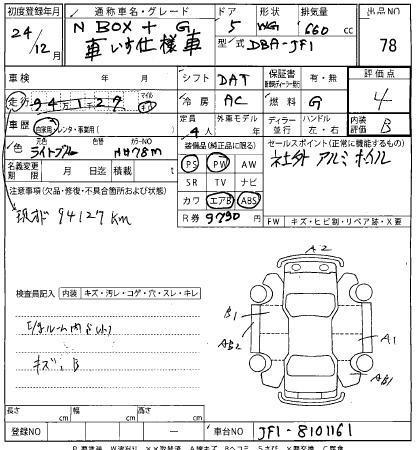 初度登録年月 通称車名・グレード ドア 形状 排気量 出品NO
24/12月 N BOX + G 車いす仕様車 5 WG 660 cc 78
型式 DBA-JF1
車検 年 月 シフト DAT 保証書 有・無 評価点
走行 94万127 マイル キロ 冷房 AC 燃料 G 4
車歴 自家用 レンタ・事業用( ) 定員 4人 外車モデル 年 ディーラー 並行 ハンドル 左・右 内装評価 B
色 ライトブルー 色替 カラーNO 装備品(純正品に限る) セールスポイント(正常に機能するもの)
名義変更期限 月 日迄 積載 t PS PW AW 社外アルミホイル
注意事項(欠品・修復・不具合箇所および状態) SR TV ナビ
現状 94127km カワ エアB ABS
R券 9790 円 FW キズ・ヒビ割・リペア跡・X要
A2
検査員記入 内装 キズ・汚レ・コゲ・穴・スレ・キレ
B1
AB2 A1
キズ、B AB1
長さ cm 幅 cm 高さ cm
登録NO ― 車台NO JF1-8101161